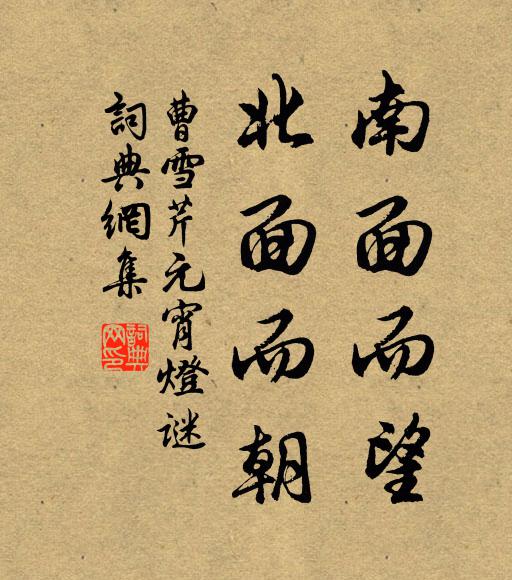 南面而望
北面而朝
曹雪芹元宵燈谜
詞典網集
詞典
网印